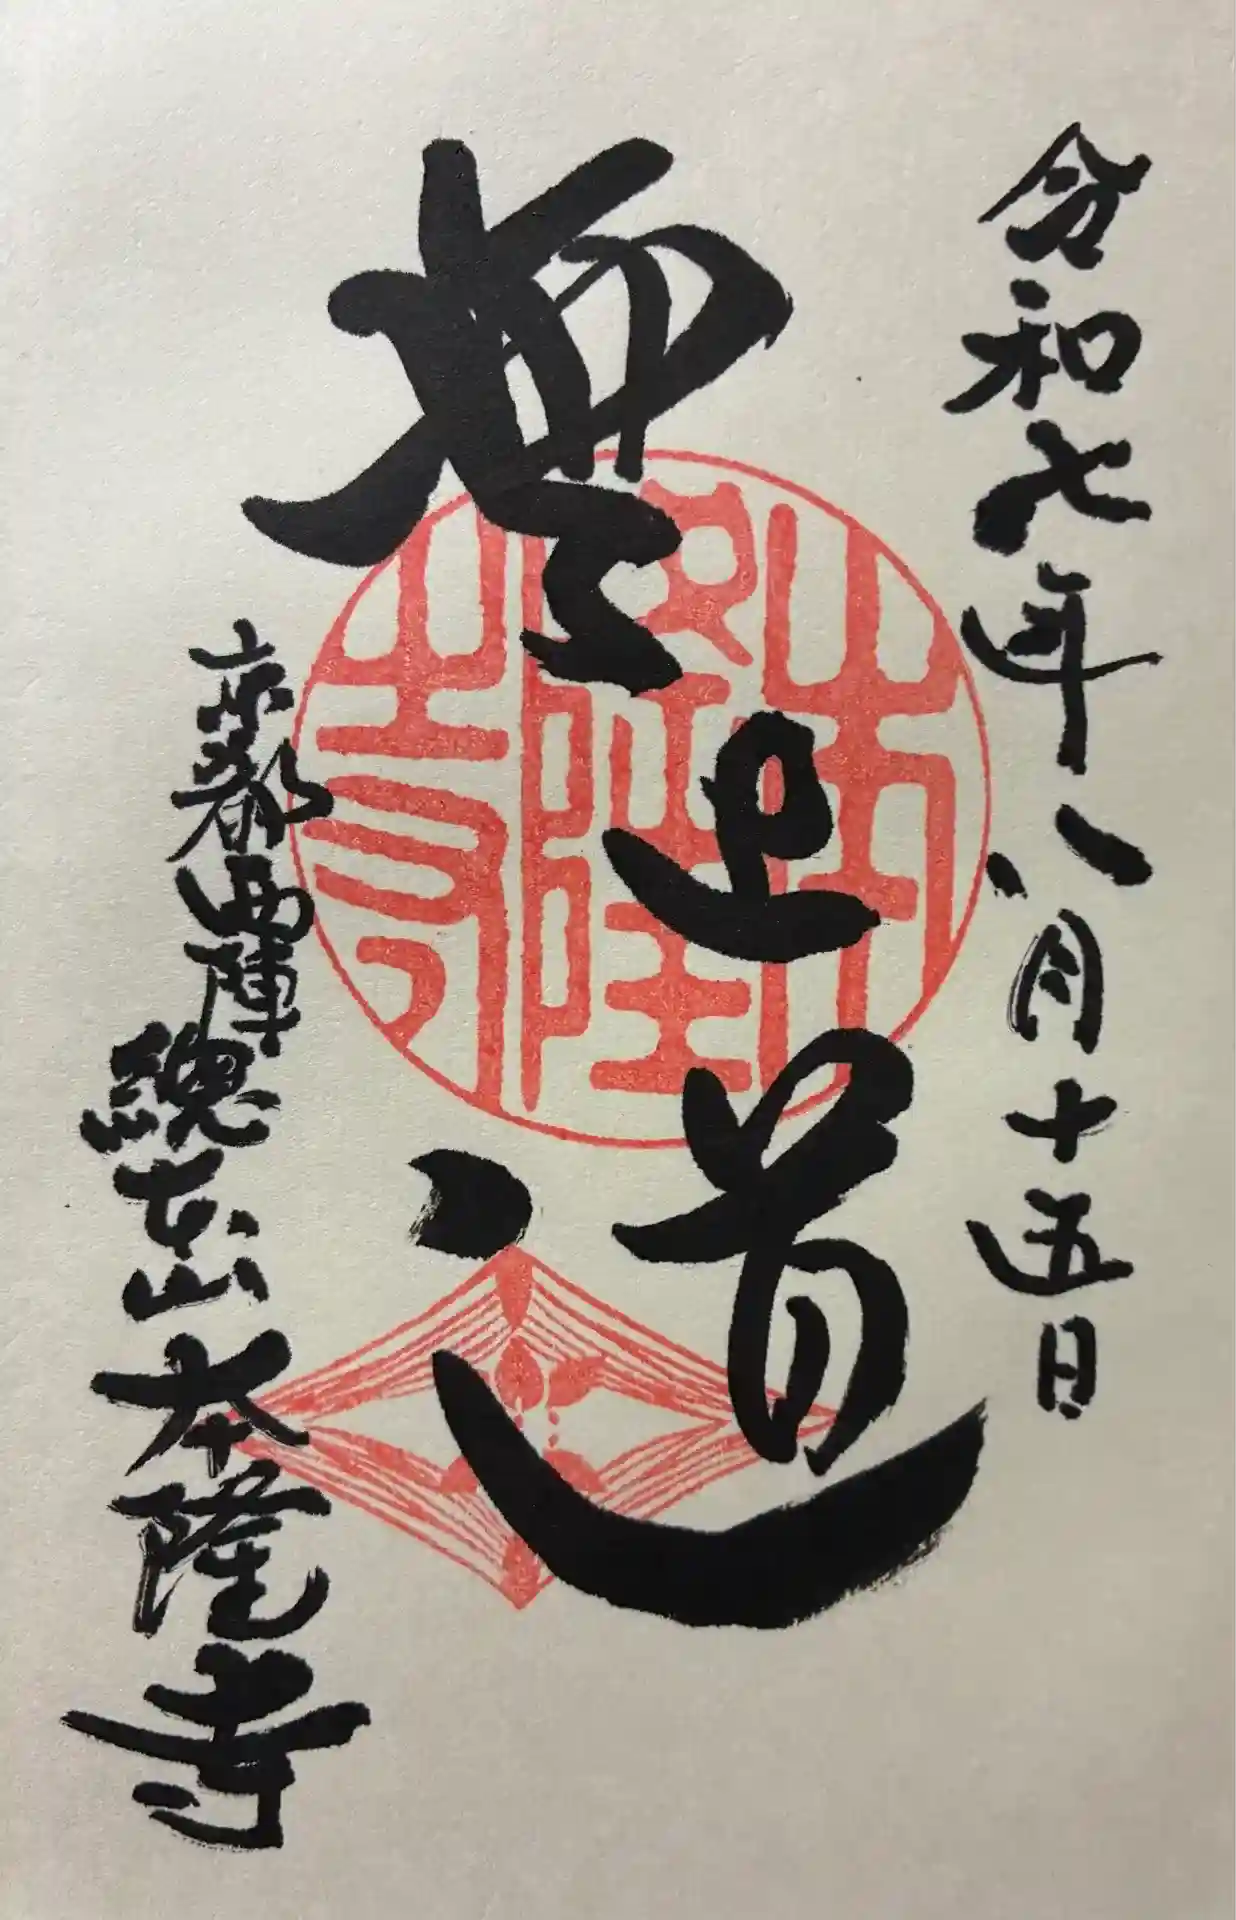 令和七年八月十五日
無上道
京都西陣總本山本隆寺
本隆寺